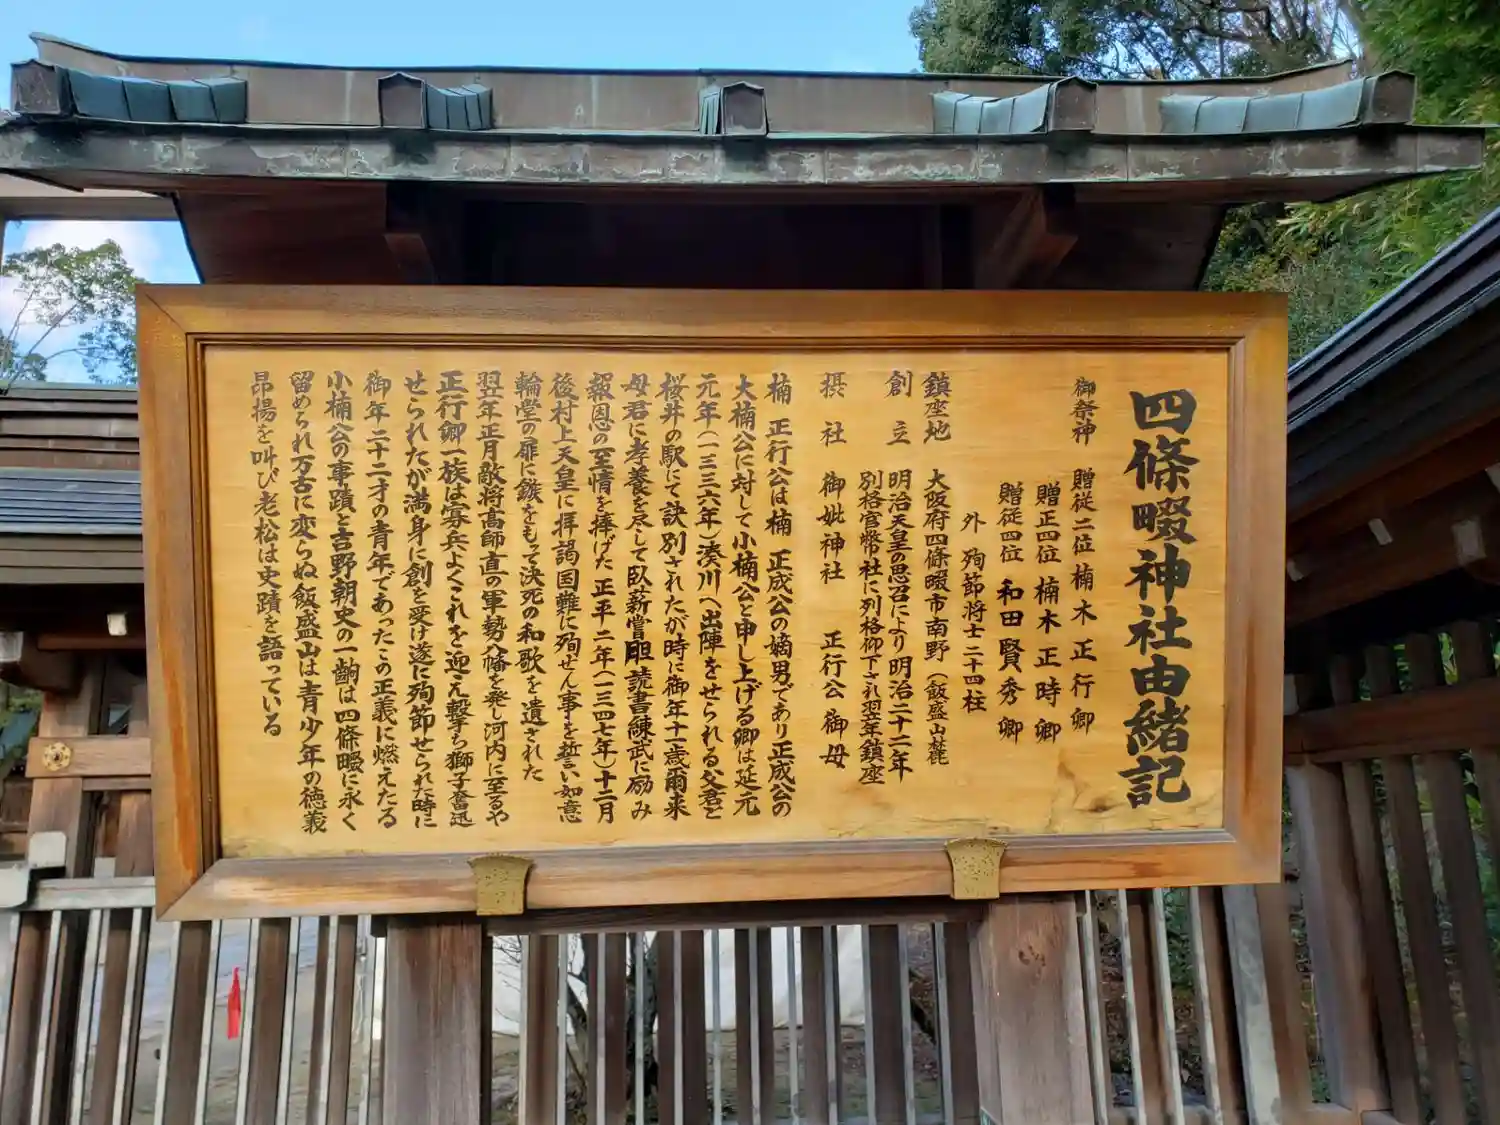 四條畷神社由緒記
御祭神 贈従二位楠木正行卿
贈正四位楠木正時卿
贈従四位和田賢秀卿
外 殉節将士二十四柱
鎮座地 大阪府四條畷市南野(飯盛山麓)
創立 明治天皇の思召により明治二十二年
別格官幣社に列格仰下され翌年鎮座
摂社 御妣神社 正行公御母
楠 正行公は楠 正成公の嫡男であり正成公の
大楠公に対して小楠公と申し上げる卿は延元
元年(一三三六年)湊川へ出陣をせられる父君と
桜井の駅にて訣別されたが時に御年十一歳爾来
母君に孝養を尽して臥薪嘗胆読書練武に励み
報恩の至情を捧げた 正平二年(一三四七年)十二月
後村上天皇に拝謁国難に殉ぜん事を誓い如意
輪堂の扉に鏃をもって決死の和歌を遺された
翌年正月敵将高師直の軍勢八幡を発し河内に至るや
正行卿一族は寡兵よくこれを迎え撃ち獅子奮迅
せられたが満身に創を受け遂に殉節せられた時に
御年二十二才の青年であったこの正義に燃えたる
小楠公の事蹟と吉野朝史の一齣は四條畷に永く
留められ万古に変らぬ飯盛山は青少年の徳義
昂揚を叫び老松は史蹟を語っている